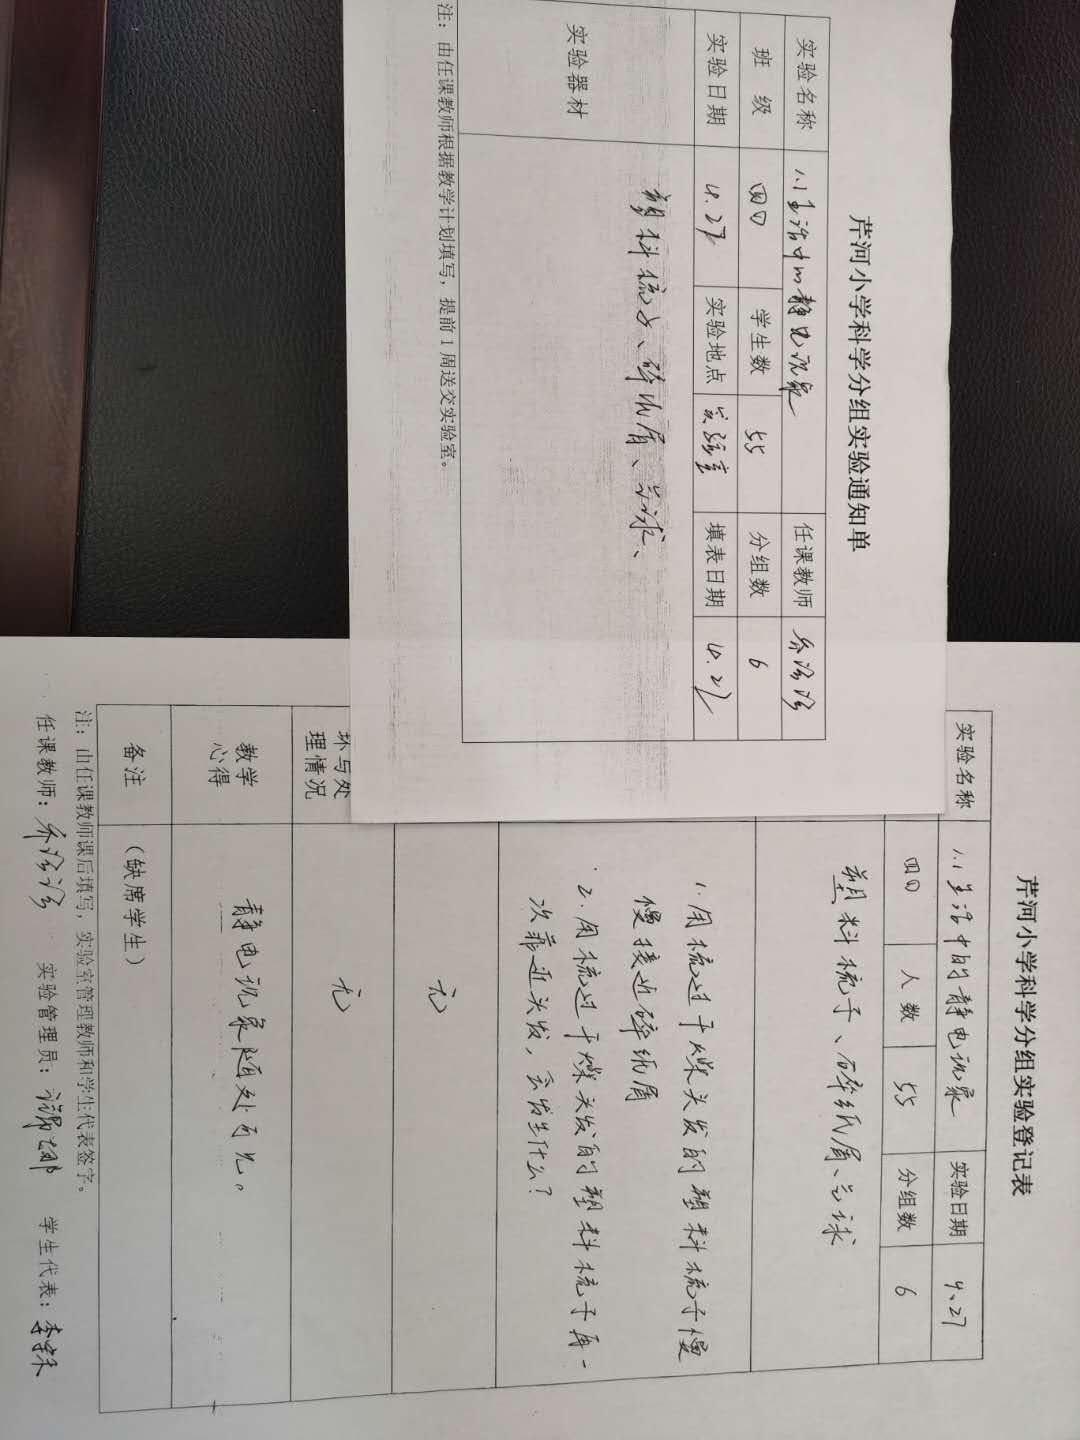 芹河小学科学分组实验通知单
实验名称 1.1生活中的静电现象 任课教师
班 级 四(1) 学生数 55 分组数 6
实验日期 4.27 实验地点 实验室 填表日期 4.21
实验器材 塑料梳子、碎纸屑、气球、
注：由任课教师根据教学计划填写，提前1周送交实验室。
芹河小学科学分组实验登记表
实验名称 1.1生活中的静电现象 实验日期 4.27
人 数 55 分组数 6
塑料梳子、碎纸屑、气球
1.用梳过干燥头发的塑料梳子慢
慢接近碎纸屑
2.用梳过干燥头发的塑料梳子再一
次靠近头发，会发生什么？
无
坏与处
理情况 无
教学
心得 静电现象随处可见。
备注 （缺席学生）
注：由任课教师课后填写，实验室管理教师和学生代表签字。
任课教师： 实验管理员： 学生代表：